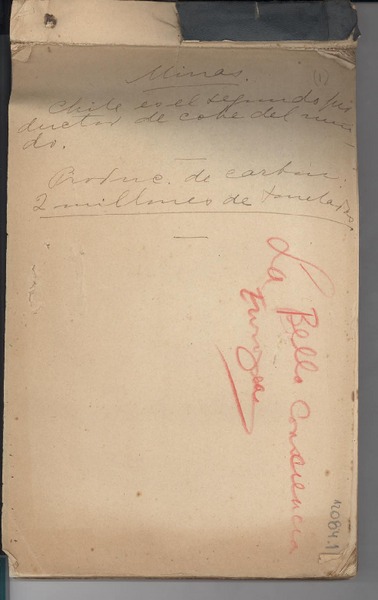 Minas.
(1)
Chile es el segundo pro
ductor de cobre del mun
do.
Produc. de carbón.
2 millones de toneladas.
La Bella Conciencia
12084.1